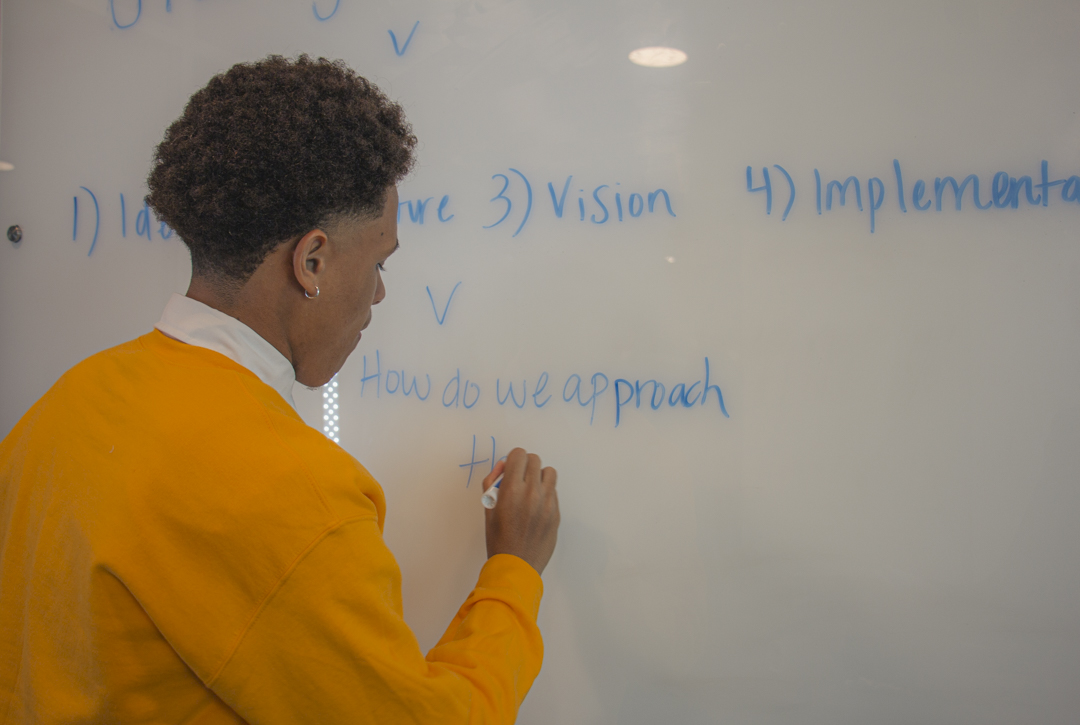 V
1) 3) Vision 4) Implementa
V
How do we approach